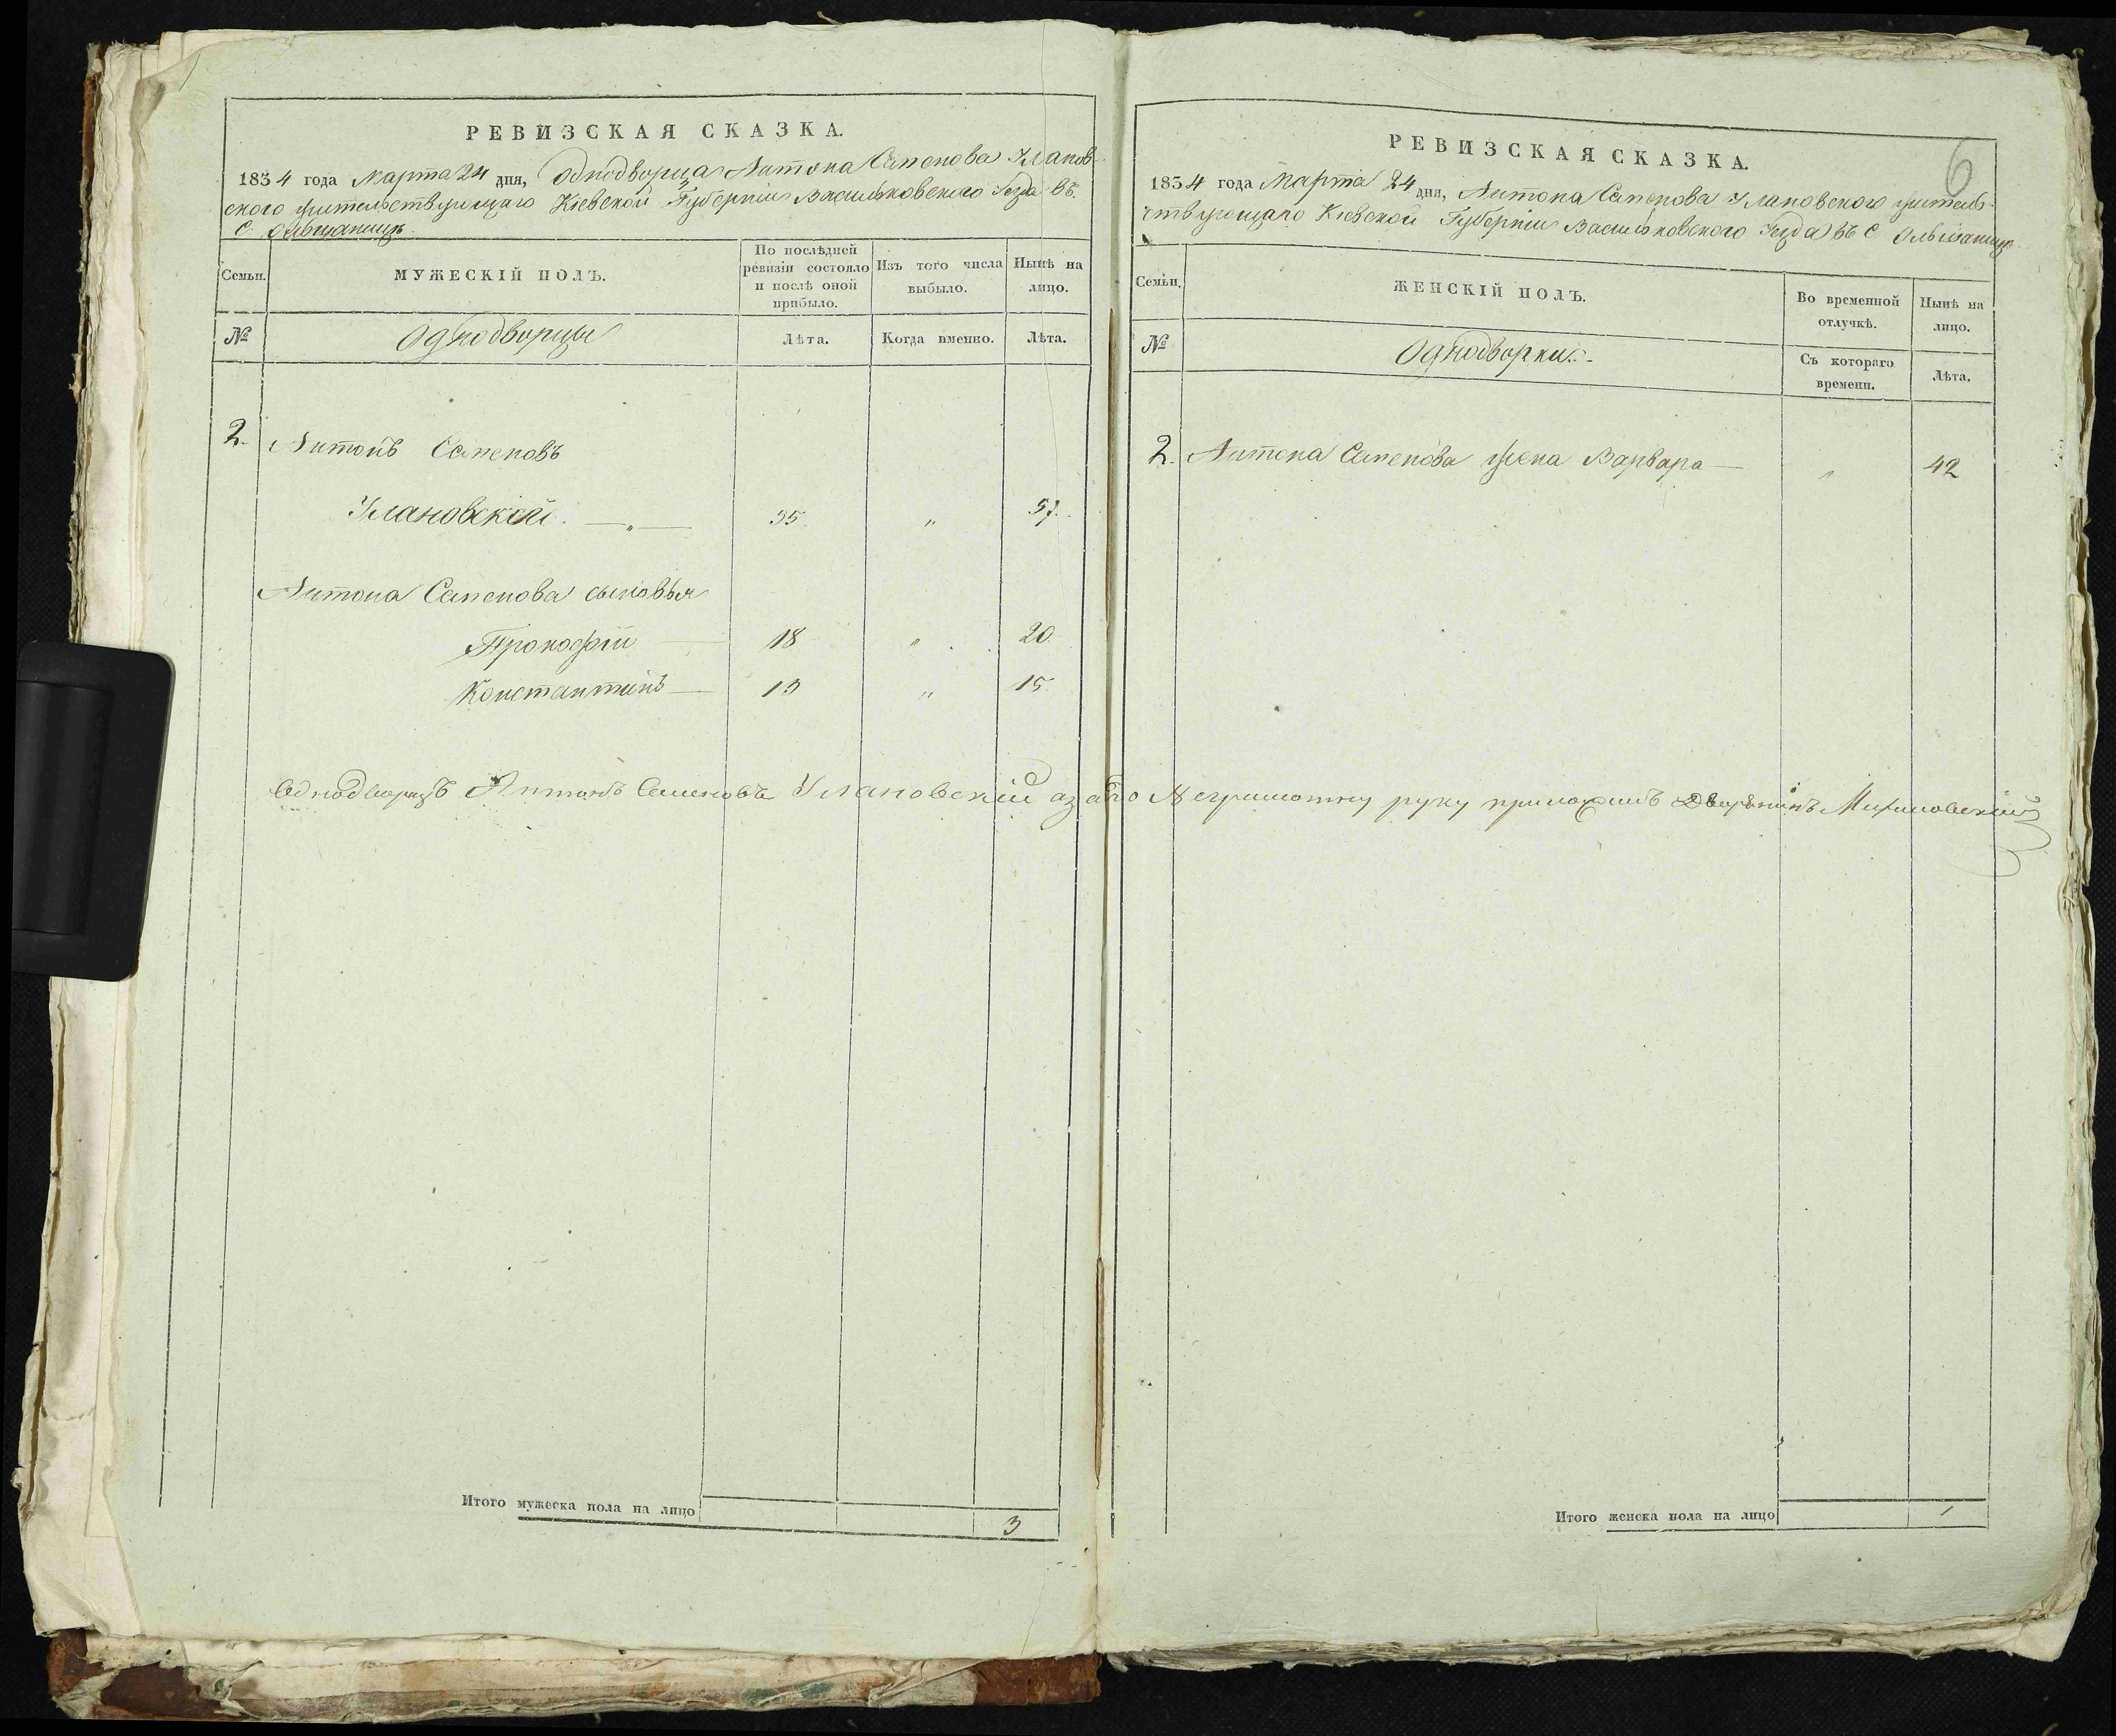 РЕВИЗСКАЯ СКАЗКА.
1834 года Марта 24 дня, Однодворца Антона Семенова Уланов-
ского жительствующаго Кіевской Губерніи Васильковского Уезда въ
с. Ольшанице
Семьи.
МУЖЕСКІЙ ПОЛЪ.
По послѣдней ревизіи состояло и послѣ оной прибыло.
Изъ того числа выбыло.
Нынѣ на лицо.
№
Однодворцы
Лѣта.
Когда именно.
Лѣта.
2. Антонъ Семеновъ
Улановскій. — „ — 35. „ 37.
Антона Семенова сыновья
Прокофій — 18 „ 20
Константинъ — 13 „ 15.
Итого мужеска пола на лицо 3
6
РЕВИЗСКАЯ СКАЗКА.
1834 года Марта 24 дня, Антона Семенова Улановского житель-
ствующаго Кіевской Губерніи Васильковского Уезда въ с Ольшанице
Семьи.
ЖЕНСКІЙ ПОЛЪ.
Во временной отлучкѣ.
Нынѣ на лицо.
№
Однодворки.
Съ котораго времени.
Лѣта.
2. Антона Семенова жена Варвара — „ 42
Однодворецъ Антонъ Семеновъ Улановскій а за его Неграмотну руку приложилъ Дворянинъ
Итого женска пола на лицо 1